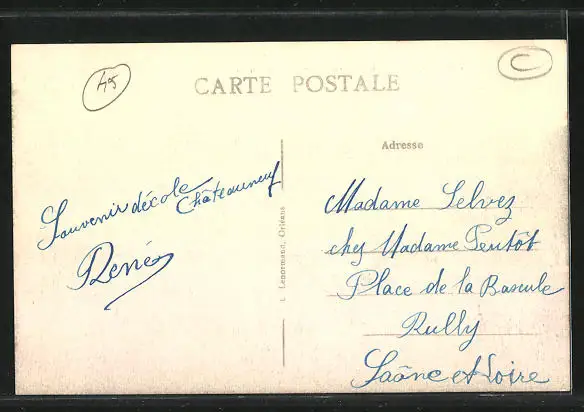 45
C
CARTE POSTALE
Adresse
Souvenir d'école
Châteauneuf
René
L. Lenormand, Orléans
Madame Selvez
chez Madame Pentôt
Place de la Bascule
Rully
Saône et Loire